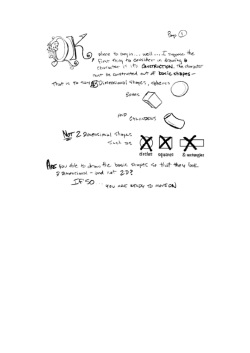 Page 1
OK where to begin... well... I suppose the
first thing to consider in drawing a
character is it's CONSTRUCTION. The character
must be constructed out of basic shapes-
that is to say 3 Dimensional shapes, spheres
Boxes
AND
Cylinders
NOT 2 Dimensional shapes
Such as
circles squares & rectangles
ARE you able to draw the basic shapes so that they look
3 Dimensional - and not 2D?
IF SO
YOU ARE READY TO MOVE ON